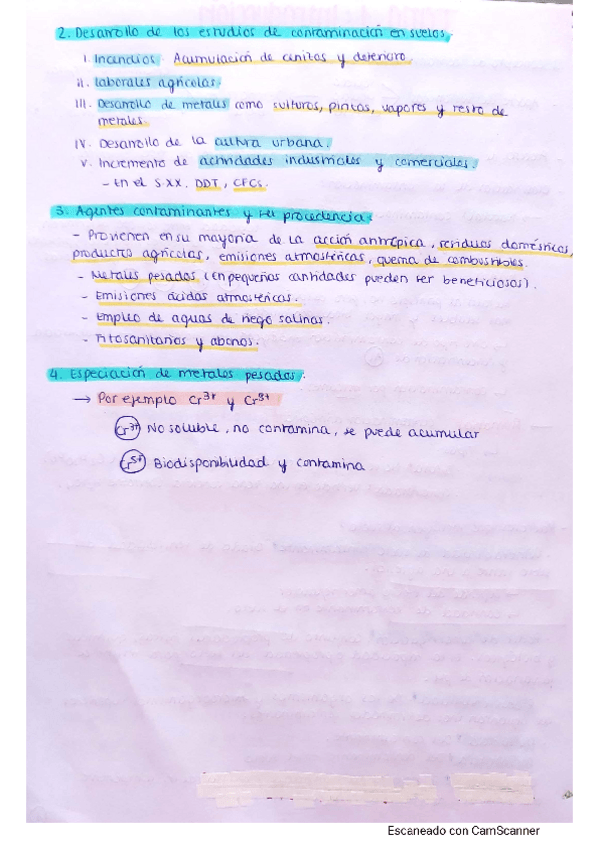 2. Desarrollo de los estudios de contaminación en suelos.
I. Incendios. Acumulación de cenizas y deterioro.
II. Laborales agrícolas.
III. Desarrollo de metales como sulfuros, pinturas, vapores y resto de
metales.
IV. Desarrollo de la cultura urbana.
V. Incremento de actividades industriales y comerciales.
- En el S.XX. DDT, CFCs.
3. Agentes contaminantes y su procedencia:
- Provienen en su mayoría de la acción antrópica, residuos domésticos,
productos agrícolas, emisiones atmosféricas, quema de combustibles.
- Metales pesados (en pequeñas cantidades pueden ser beneficiosos).
- Emisiones ácidas atmosféricas.
- Empleo de aguas de riego salinas.
- Fitosanitarios y abonos.
4. Especiación de metales pesados:
→ Por ejemplo Cr3+ y Cr5+
Cr3+ No soluble, no contamina, se puede acumular
Cr5+ Biodisponibilidad y contamina
Escaneado con CamScanner